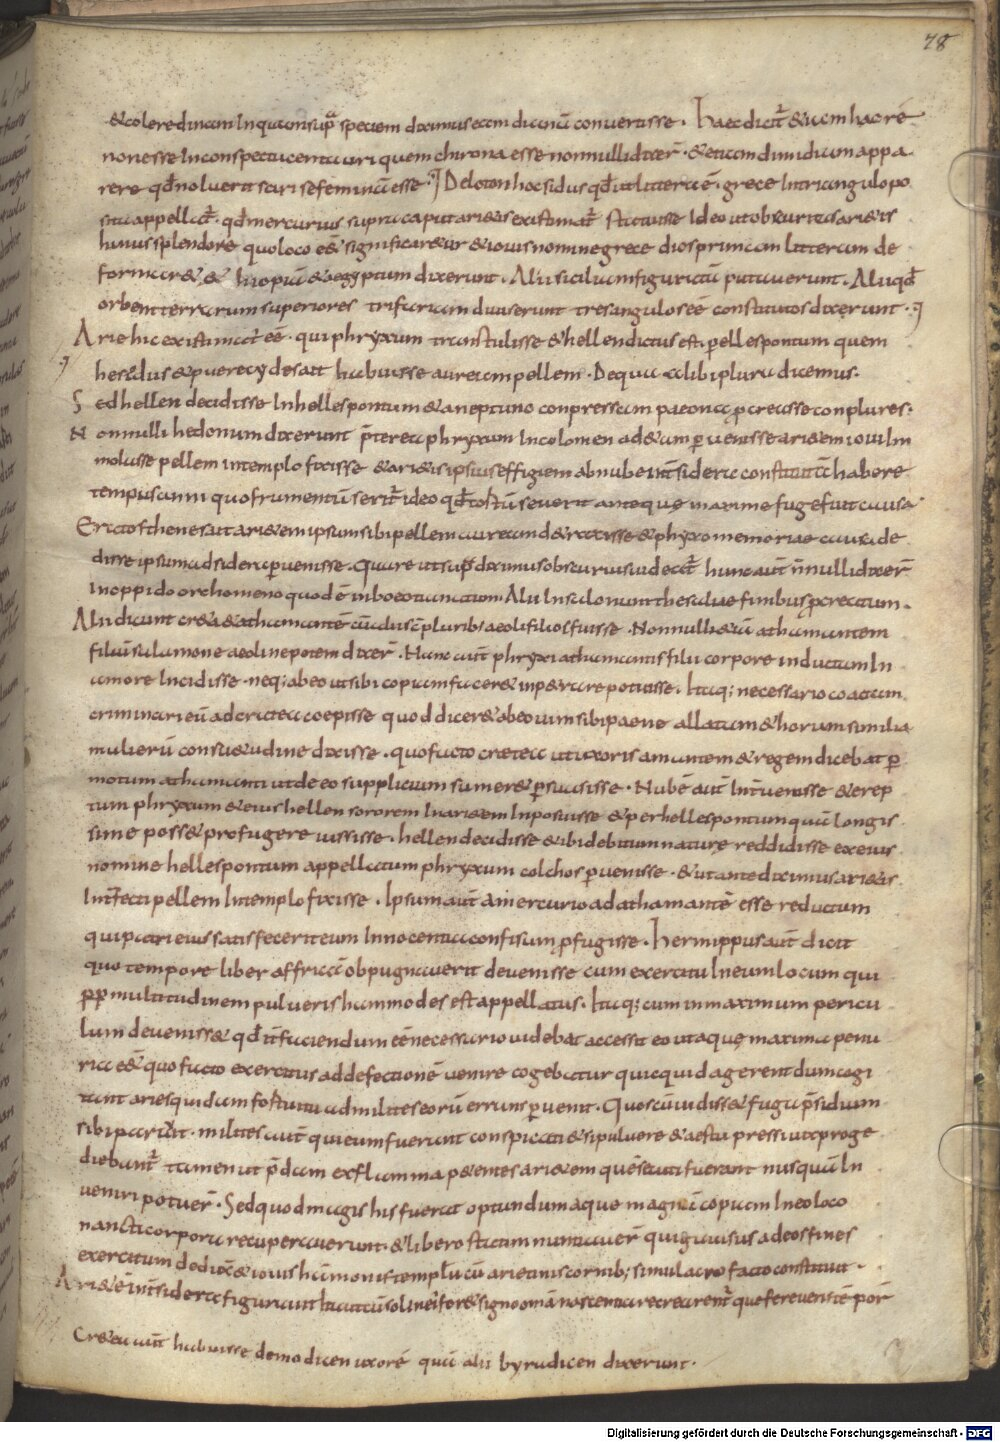 78
& colere dinam In quam sup̄ speciem diximus eam dianā convertisse . haec dicit̄ & iam hac rē
non esse In conspectu centauri quem chirona esse nonnulli dixer̄ . & etiam dimidiam appa
rere qđ noluerit sciri se feminā esse . Deloton hoc sidus qđ ut littera ē . grece In triangulo po
situ appellat̄ . qđ mercurius supra caput ari&is existimat̄ statuisse Ideo ut obscuritas ari&is
huius splendore quo loco eē& significar&ur & iovis nomine grece dios primam litteram de
formar& & hiopiā & aegyptum dixerunt . Alii siciliam figuratā putaverunt . Alii qđ
orbem terrarum superiores trifariam diviserunt tres angulos eē constitutos dixerunt .
Arie hic existimat̄ eē . qui phryxum transtulisse & hellen dictus est . p hellespontum quem
hesidus & puerecydes ait habuisse auream pellem . De qua alibi plura dicemus .
Sed hellen decidisse In hellespontum & a neptuno conpressam paeona pcreasse conplures .
Nonnulli hedonum dixerunt p̄terea phryxum Incolomen ad &am pvenisse ari&em iovi Im
molasse pellem in templo fixisse & ari&is ipsius effigiem ab nube Int̄ sidera constitutā habere
tempus anni quo frumentū serit̄ ideo qđ tostū severit ante que maxime fuge fuit causa
Eratosthenes ait ari&em ipsum sibi pellem auream d&raxisse & phyxo memoriae causa de
disse ipsum ad sidera pvenisse . Quare ut sup̄ diximus obscurius videat̄ hunc aut̄ n̄nulli dixer̄
In oppido orchomeno quod ē in boeotia natum . Alii In salonum thesaliae finibus pcreatum .
Alii dicunt cr&ea & athamantē cū aliis cō plurib; aeoli filios fuisse . Nonnulli &iā athamantem
filiū salamone aeoli nepotem dixer̄ . Hunc aut̄ phryxi athamantis filii corpore inductum In
amore Incidisse . neq; ab eo ut sibi copiam facer& inp&rare potuisse . Itaq; necessario coactam
criminari eū ad cr&ea coepisse quod dicer& ab eo vim sibi paene allatam & horum similia
mulierū consu&udine dixisse . quo facto cr&ea ut uxoris amantem & regem dicebat p
motum athamanti ut de eo supplicium sumer& psuasisse . Nubē aut̄ Int̄venisse & erep
tum phryxum & eius hellen sororem In ari&em Inposuisse & per hellespontum quā longis
sime poss& profugere iussisse . hellen decidisse & ibi debitum naturę reddidisse ex eius
nomine hellespontum appellatum phryxum colchos pvenisse . & ut ante diximus ari&is
Int̄fecti pellem In templo fixisse . Ipsum aut̄ a mercurio ad athamantē esse reductum
qui patri eius satisfecerit eum Innocentia confisum pfugisse . hermippus aut̄ dicit
quo tempore liber affricā obpugnaverit devenisse cum exercitu In eum locum qui
pp multitudinem pulveris hammodes est appellatus . Itaq; cum in maximum pericu
lum devenisse& qđ it̄ faciendum eē necessario videbat accessit eo ut aquę maxima penu
ria eē& quo facto exercitus ad defectionē venire cogebatur qui quid agerent dum cogi
tant aries quidam fortuitu ad milites eorū errans pvenit . Quos cū vidiss& fuga p̄sidium
sibi paravit . milites aut̄ qui eum fuerant conspicati & si pulvere & aestu pressi vix proge
diebant̄ tamen ut p̄dam ex flamma p&entes ari&em quē secuti fuerant nusquā In
veniri potuer̄ . Sed quod magis his fuerat optandum aquę magnā copiam In eo loco
nancti corpora recuperaverunt . & libero statim nuntiaver̄ qui gavisus ad eos fines
exercitum deduxit & iovis hāmonis templū cū arietinis cornib; simulacro facto constituit .
Ari&ē int̄ sidera figuravit
Cr&ea aut̄ habuisse demodicen uxorē quā alii byradicen dixerunt .
Digitalisierung gefördert durch die Deutsche Forschungsgemeinschaft - DFG